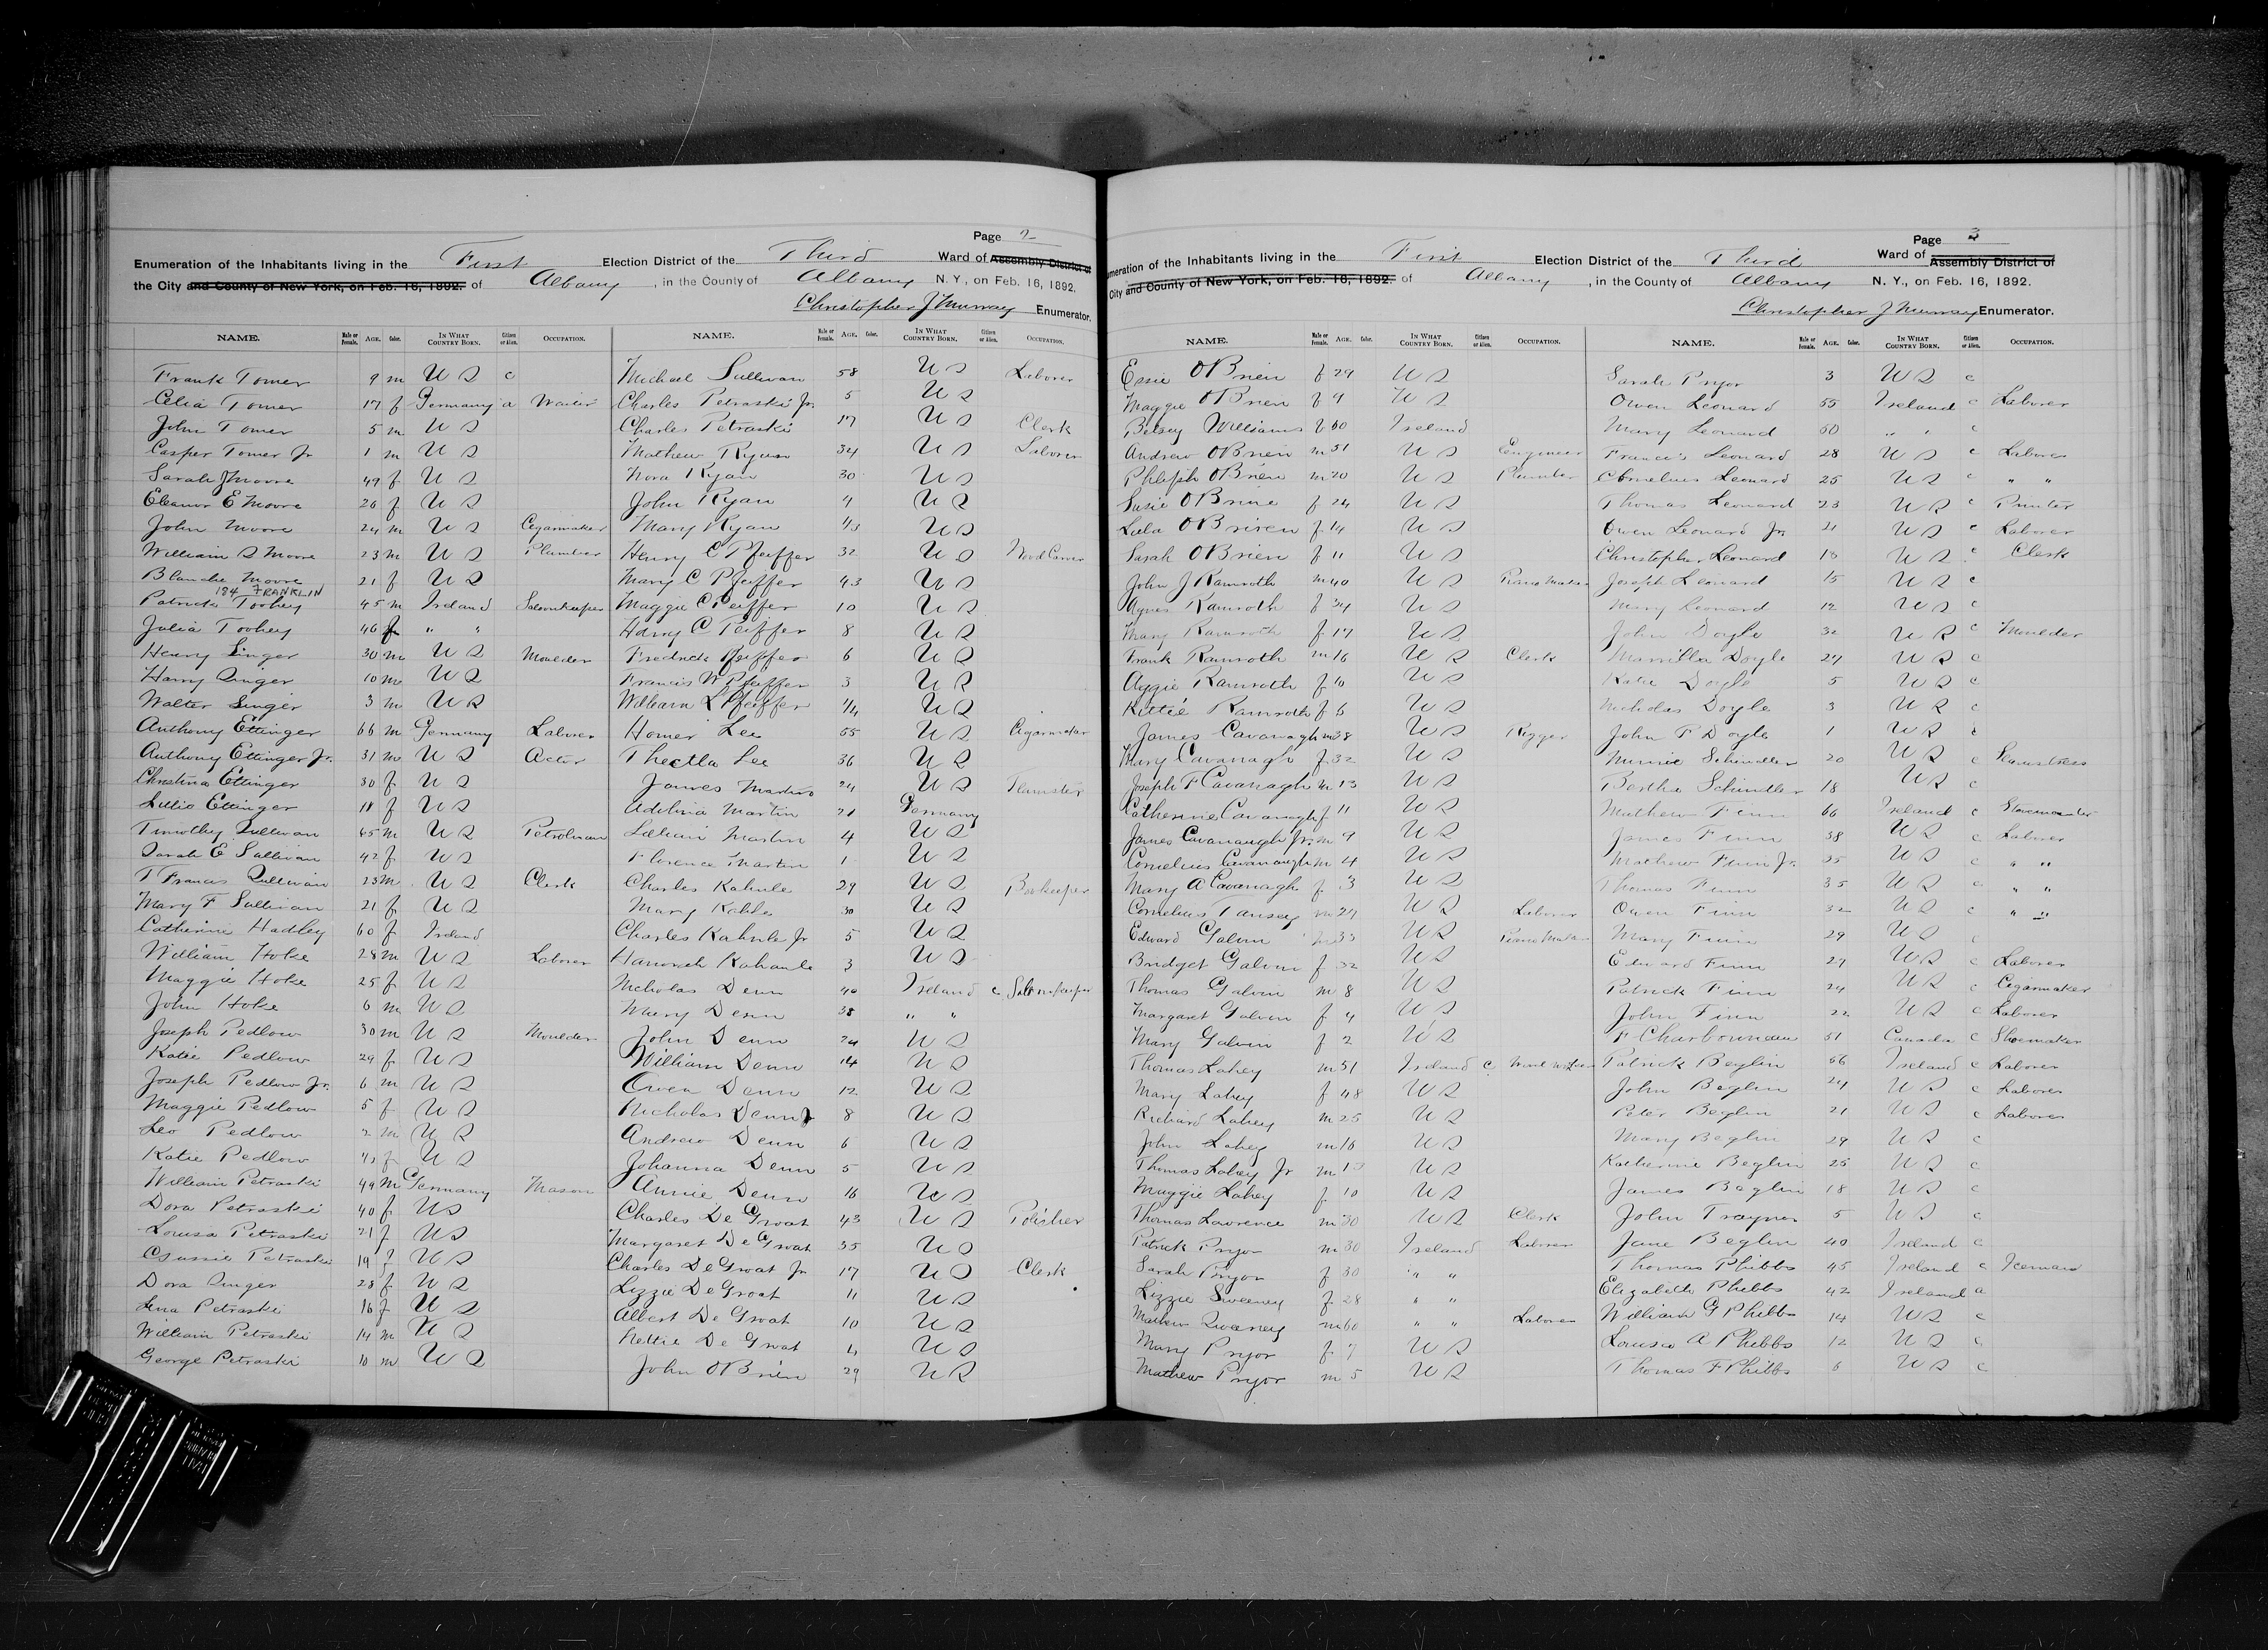 Page 2
Enumeration of the Inhabitants living in the First Election District of the Third Ward of Assembly District of
the City and County of New York, on Feb. 16, 1892. of Albany, in the County of Albany N. Y., on Feb. 16, 1892.
Christopher J Murray Enumerator.
NAME. Male or Female. AGE. Color. IN WHAT COUNTRY BORN. Citizen or Alien. OCCUPATION.
Frank Tomer 9 m U S c
Celia Tomer 17 f Germany a Waiter
John Tomer 5 m U S
Casper Tomer Jr 1 m U S
Sarah J Moore 49 f U S
Eleanor E Moore 26 f U S
John Moore 24 m U S Cigarmaker
William S Moore 23 m U S Plumber
Blanche Moore 21 f U S
184 FRANKLIN
Patrick Toohey 45 m Ireland Saloonkeeper
Julia Toohey 46 f " "
Henry Singer 30 m U S Moulder
Harry Singer 10 m U S
Walter Singer 3 m U S
Anthony Ettinger 66 m Germany Laborer
Anthony Ettinger Jr. 31 m U S Actor
Christina Ettinger 30 f U S
Lillie Ettinger 18 f U S
Timothy Sullivan 45 m U S Patrolman
Sarah E Sullivan 42 f U S
T Francis Sullivan 23 m U S Clerk
Mary F Sullivan 21 f U S
Catherine Hadley 60 f Ireland
William Hoke 28 m U S Laborer
Maggie Hoke 25 f U S
John Hoke 6 m U S
Joseph Pedlow 30 m U S Moulder
Katie Pedlow 29 f U S
Joseph Pedlow Jr. 6 m U S
Maggie Pedlow 5 f U S
Leo Pedlow 2 m U S
Katie Pedlow f U S
William Petraski 49 m Germany Mason
Dora Petraski 40 f U S
Louisa Petraski 21 f U S
Gussie Petraski 19 f U S
Dora Singer 28 f U S
Lena Petraski 16 f U S
William Petraski 14 m U S
George Petraski 10 m U S
NAME. Male or Female. AGE. Color. IN WHAT COUNTRY BORN. Citizen or Alien. OCCUPATION.
Michael Sullivan 58 U S Laborer
Charles Petraski Jr. 5 U S
Charles Petraski 17 U S Clerk
Mathew Ryan 34 U S Laborer
Nora Ryan 30 U S
John Ryan 4 U S
Mary Ryan U S
Henry C Pfeiffer 32 U S Wood Carver
Mary C Pfeiffer 43 U S
Maggie C Peiffer 10 U S
Harry C Peiffer 8 U S
Fredrick Pfeiffer 6 U S
Francis W Pfeiffer 3 U S
William L Pfeiffer U S
Homer Lee 55 U S Cigarmaker
Thectla Lee 36 U S
James Martin 24 U S Teamster
Adelina Martin 21 Germany
Lillian Martin 4 U S
Florence Martin 1 U S
Charles Kahnle 29 U S Bookeeper
Mary Kahle 30 U S
Charles Kahnle Jr 5 U S
Hannah Kahanle 3 U S
Nicholas Denn 40 Ireland c Saloonkeeper
Mary Denn 38 " "
John Denn U S
William Denn 14 U S
Owen Denn 12 U S
Nicholas Denn Jr 8 U S
Andrew Denn 6 U S
Johanna Denn 5 U S
Annie Denn 16 U S
Charles De Groat 43 U S Polisher
Margaret De Groat 35 U S
Charles De Groat Jr 17 U S Clerk
Lizzie De Groat 11 U S
Albert De Groat 10 U S
Nettie De Groat U S
John OBrien 29 U S
Page 3
Enumeration of the Inhabitants living in the First Election District of the Third Ward of Assembly District of
City and County of New York, on Feb. 16, 1892. of Albany, in the County of Albany N. Y., on Feb. 16, 1892.
Christopher J Murray Enumerator.
NAME. Male or Female. AGE. Color. IN WHAT COUNTRY BORN. Citizen or Alien. OCCUPATION.
Essie OBrien f 29 U S
Maggie OBrien f 9 U S
Betsey Williams f 60 Ireland
Andrew OBrien m 51 U S Engineer
Philiph OBrien m 20 U S Plumber
Susie OBrine f 24 U S
Lula OBrien f 14 U S
Sarah OBrien f 11 U S
John J Ramroth m 40 U S Piano Maker
Agnes Ramroth f 34 U S
Mary Ramroth f 17 U S
Frank Ramroth m 16 U S Clerk
Aggie Ramroth f 10 U S
Kittie Ramroth f 6 U S
James Cavanagh m 38 U S Rigger
Mary Cavanagh f 32 U S
Joseph F Cavanagh m 13 U S
Catherine Cavanagh f 11 U S
James Cavanaugh Jr. m 9 U S
Cornelius Cavanaugh m 4 U S
Mary A Cavanagh f 3 U S
Cornelius Tansey m 27 U S Laborer
Edward Galvin m 33 U S Piano Maker
Bridget Galvin f 32 U S
Thomas Galvin m 8 U S
Margaret Galvin f 4 U S
Mary Galvin f 2 U S
Thomas Lahey m 51 Ireland c
Mary Lahey f 48 U S
Richard Lahey m 25 U S
John Lahey m 16 U S
Thomas Lahey Jr m 13 U S
Maggie Lahey f 10 U S
Thomas Lawrence m 30 U S Clerk
Patrick Pryor m 30 Ireland Laborer
Sarah Pryor f 30 " "
Lizzie Sweeney f 28 " "
Mathew Sweeney m 60 " " Laborer
Mary Pryor f 7 U S
Mathew Pryor m 5 U S
NAME. Male or Female. AGE. Color. IN WHAT COUNTRY BORN. Citizen or Alien. OCCUPATION.
Sarah Pryor 3 U S c
Owen Leonard 55 Ireland c Laborer
Mary Leonard 50 " " c
Francis Leonard 28 U S c Laborer
Cornelius Leonard 25 U S c " "
Thomas Leonard 23 U S c Printer
Owen Leonard Jr 21 U S c Laborer
Christopher Leonard 18 U S c Clerk
Joseph Leonard 15 U S c
Mary Leonard 12 U S c
John Doyle 32 U S c Moulder
Marrilla Doyle 27 U S c
Katie Doyle 5 U S c
Nicholas Doyle 3 U S c
John P Doyle 1 U S c
Minnie Schindler 20 U S c Seamstress
Bertha Schindler 18 U S c
Mathew Finn 66 Ireland c
James Finn 38 U S c Laborer
Mathew Finn Jr. 35 U S c " "
Thomas Finn 35 U S c " "
Owen Finn 32 U S c " "
Mary Finn 29 U S c
Edward Finn 27 U S c Laborer
Patrick Finn 24 U S c Cigarmaker
John Finn 22 U S c Laborer
F Charbonneau 51 Canada c Shoemaker
Patrick Beglin 56 Ireland c Laborer
John Beglin 24 U S c Laborer
Peter Beglin 21 U S c Laborer
Mary Beglin 29 U S c
Katherine Beglin 25 U S c
James Beglin 18 U S c
John Traynor 5 U S c
Jane Beglin 40 Ireland c
Thomas Phibbs 45 Ireland c Iceman
Elizabeth Phibbs 42 Ireland a
William G Phibbs 14 U S c
Louisa A Phibbs 12 U S c
Thomas F Phibbs 6 U S c